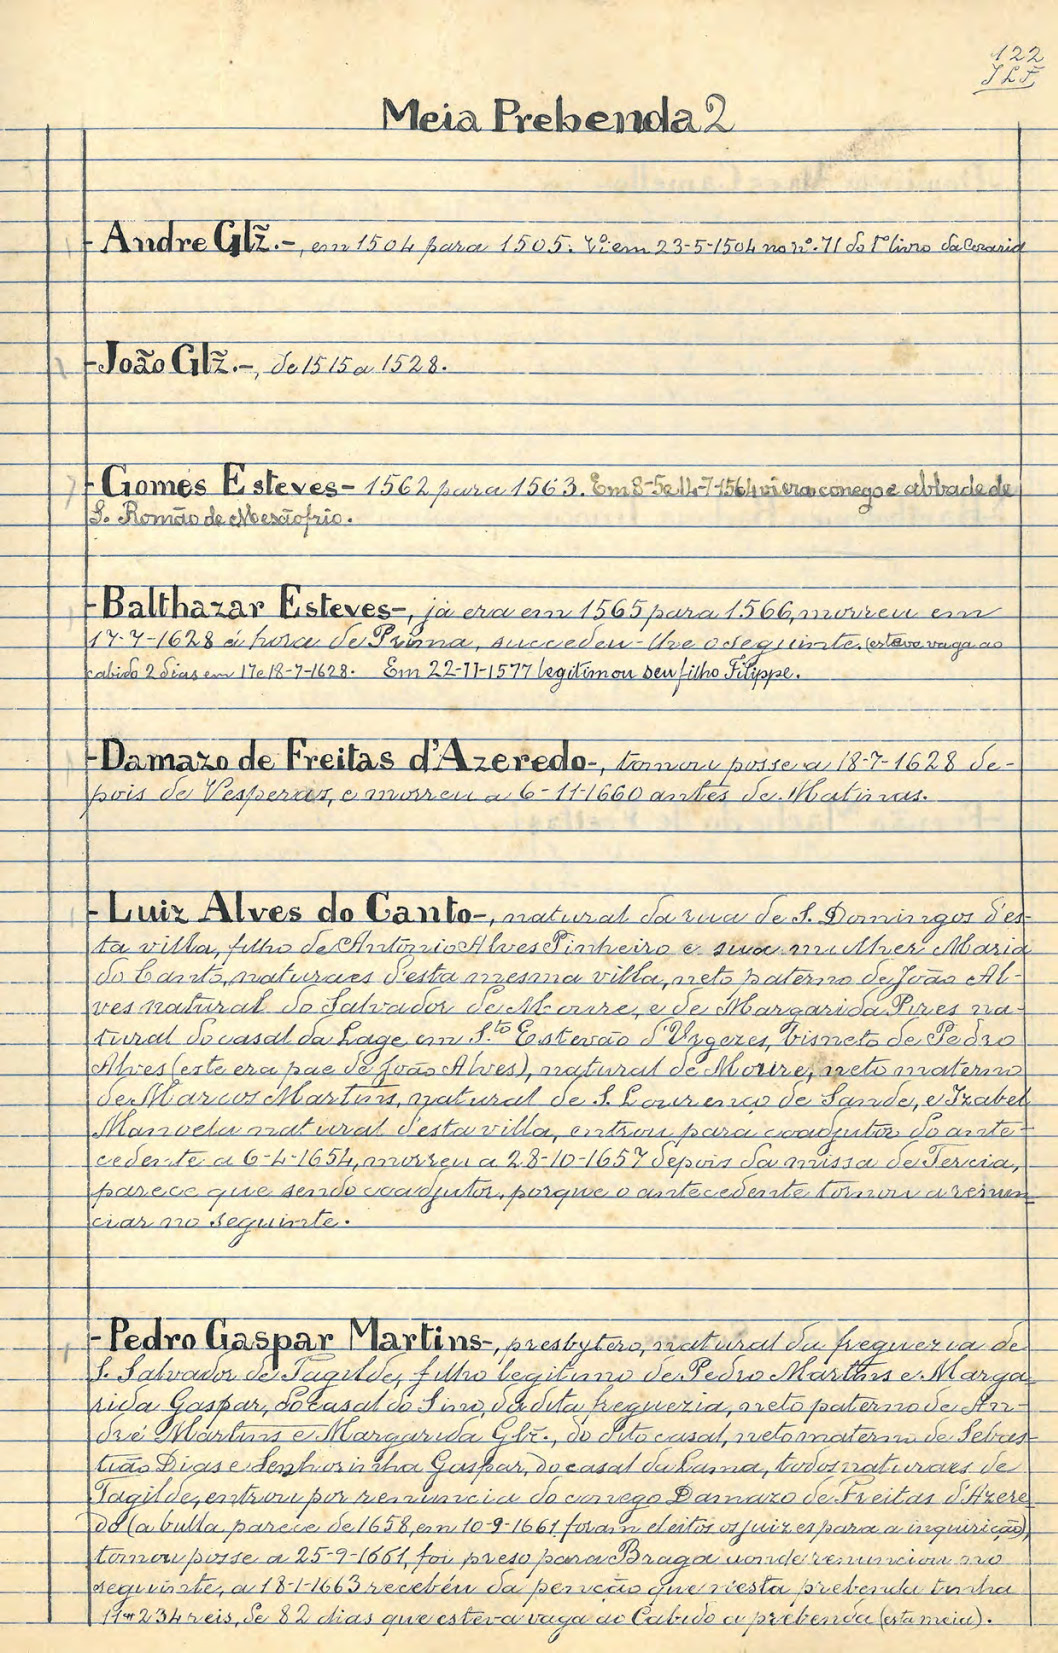 122
J L F
Meia Prebenda 2
-Andre Glz̃.-, em 1504 para 1505. Vi: em 23-5-1504 no nº. 71 do 1º livro da
-João Glz̃.-, de 1515 a 1528.
-Gomes Esteves- 1562 para 1563. Em 8-5 e 14-7-1564 vi era conego e abbade de
S. Romão de Mesãofrio.
-Balthazar Esteves-, já era em 1565 para 1566, morreu em
17-7-1628 á hora de Prima, succedeu-lhe o seguinte. (esteve vaga ao
cabido 2 dias em 17 e 18-7-1628. Em 22-11-1577 legitimou seu filho Filippe.
-Damazo de Freitas d'Azeredo-, tomou posse a 18-7-1628 de-
pois de Vesperas, e morreu a 6-11-1660 antes de Matinas.
-Luiz Alves do Canto-, natural da rua de S. Domingos d'es-
ta villa, filho de Antonio Alves Pinheiro e sua mulher Maria
do Canto, naturaes d'esta mesma villa, neto paterno de João Al-
ves natural do Salvador de Moure, e de Margarida Pires na-
tural do casal da Lage em S.to Estevão d'Urgezes, bisneto de Pedro
Alves (este era pae de João Alves), natural de Moure, neto materno
de Marcos Martins, natural de S. Lourenço de Sande, e Izabel
Manoela natural d'esta villa, entrou para coadjutor do ante-
cedente a 6-4-1654, morreu a 28-10-1657 depois da missa de Tercia,
parece que sendo coadjutor, porque o antecedente tornou a renun-
ciar no seguinte.
-Pedro Gaspar Martins-, presbytero, natural da freguezia de
S. Salvador de Tagilde, filho legitimo de Pedro Martins e Marga-
rida Gaspar, do casal do Sino, da dita freguezia, neto paterno de An-
dré Martins e Margarida Glz̃., do dito casal, neto materno de Sebas-
tião Dias e Senhorinha Gaspar, do casal da Lama, todos naturaes de
Tagilde, entrou por renuncia do conego Damazo de Freitas d'Azere-
do (a bulla parece de 1658, em 10-9-1661 foram eleitos os juizes para a inquirição),
tomou posse a 25-9-1661, foi preso para Braga aonde renunciou no
seguinte, a 18-1-1663 recebéu da penção que n'esta prebenda tinha
11#234 reis, de 82 dias que esteva vaga ao Cabido a prebenda (esta meia).